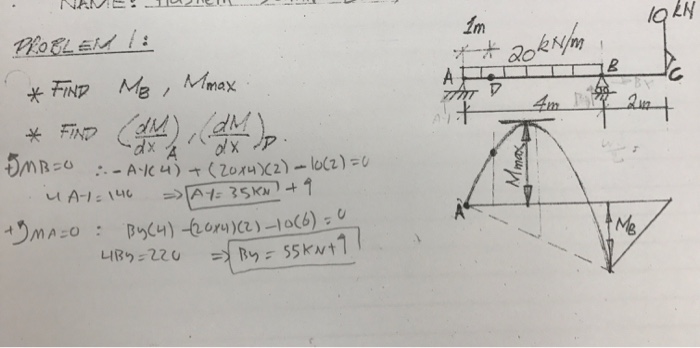 NAME:
PROBLEM 1:
* FIND MB, Mmax
* FIND (dM/dx)A, (dM/dx)D.
MB=0 ∴ -Ay(4) + (20x4)(2) -10(2)=0
4Ay=140 ⇒ Ay=35KN
+ MA=0 : By(4) -(20x4)(2) -10(6)=0
4By=220 ⇒ By=55KN
10 kN
1m
20kN/m
A
D
B
C
4m
2m
Mmax
A
MB